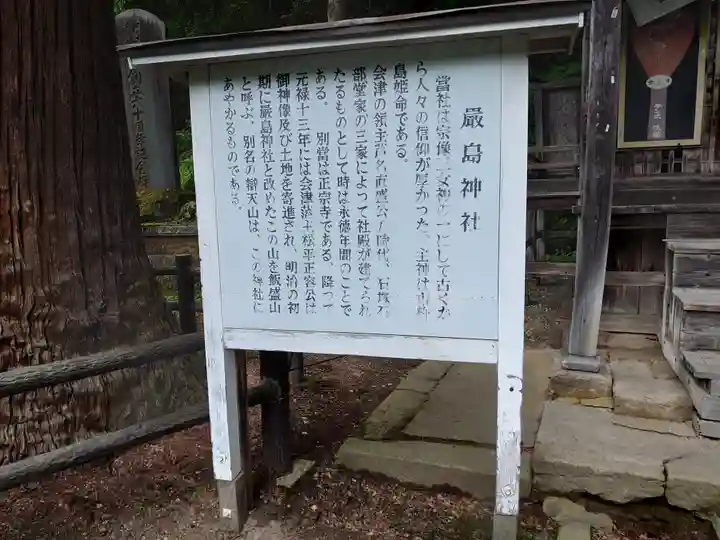 嚴島神社
當社は宗像三女神の一にして古くか
ら人々の信仰が厚かった。主神は市杵
島姫命である。
会津の領主芦名直盛公の時代、石塚、
部堂家の三家によって社殿が建てられ
たるものとして時は永徳年間のことで
ある。 別當は正宗寺である。降って
元禄十三年には会津藩主松平正容公は
御神像及び土地を寄進され、明治の初
期に嚴島神社と改めたこの山を飯盛山
と呼ぶ、別名の辯天山は、この神社に
あやかるものである。